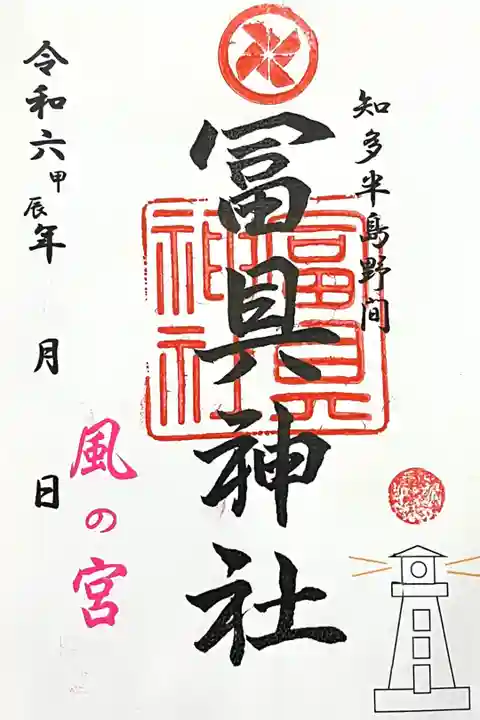 知多半島野間
冨具神社
冨具神社
風の宮
令和六甲辰年 月 日